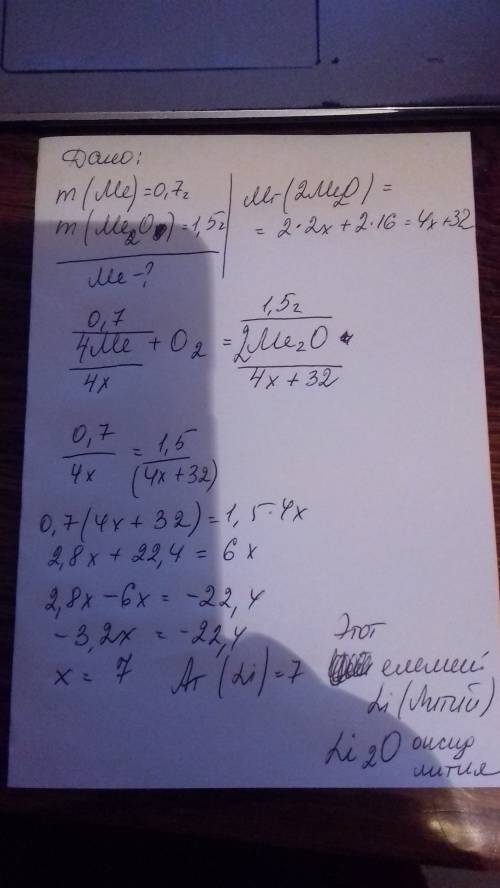 Дано:
m(Me)=0,7г
m(Me₂O)=1,5г
Me-?
Mr(2Me₂O)=
=2·2x+2·16=4x+32
0,7 1,5г
4Me + O₂ = 2Me₂O
4x 4x+32
0,7/4x = 1,5/(4x+32)
0,7(4x+32)=1,5·4x
2,8x+22,4=6x
2,8x-6x=-22,4
-3,2x=-22,4
x=7 Ar(Li)=7
Этот
елемен
Li(Литий)
Li₂O оксид
лития